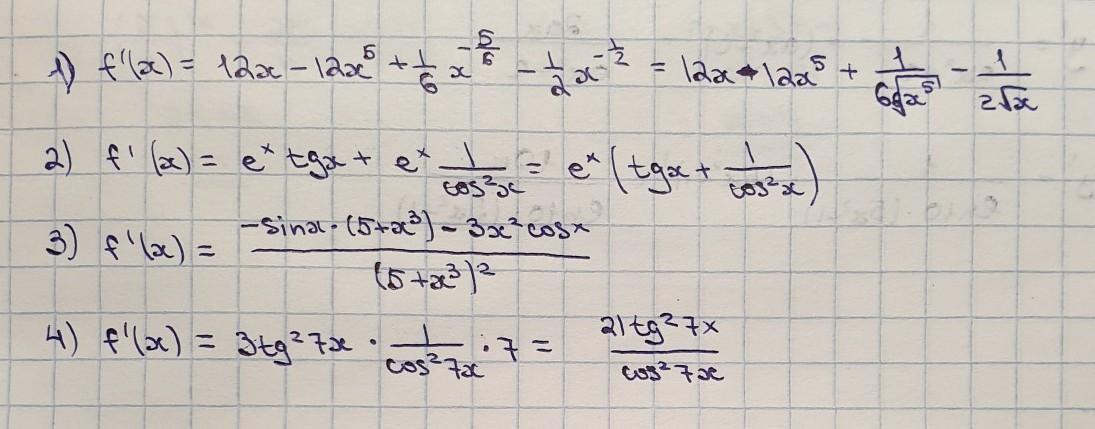 1) f'(x) = 12x - 12x⁵ + 1/6 x^(-5/6) - 1/2 x^(-1/2) = 12x - 12x⁵ + 1/(6 ⁶√x⁵) - 1/(2√x)
2) f'(x) = eˣ tgx + eˣ 1/cos²x = eˣ (tgx + 1/cos²x)
3) f'(x) = (-sinx · (5+x³) - 3x² cosx)/(5+x³)²
4) f'(x) = 3tg²7x · 1/cos²7x · 7 = 21tg²7x/cos²7x